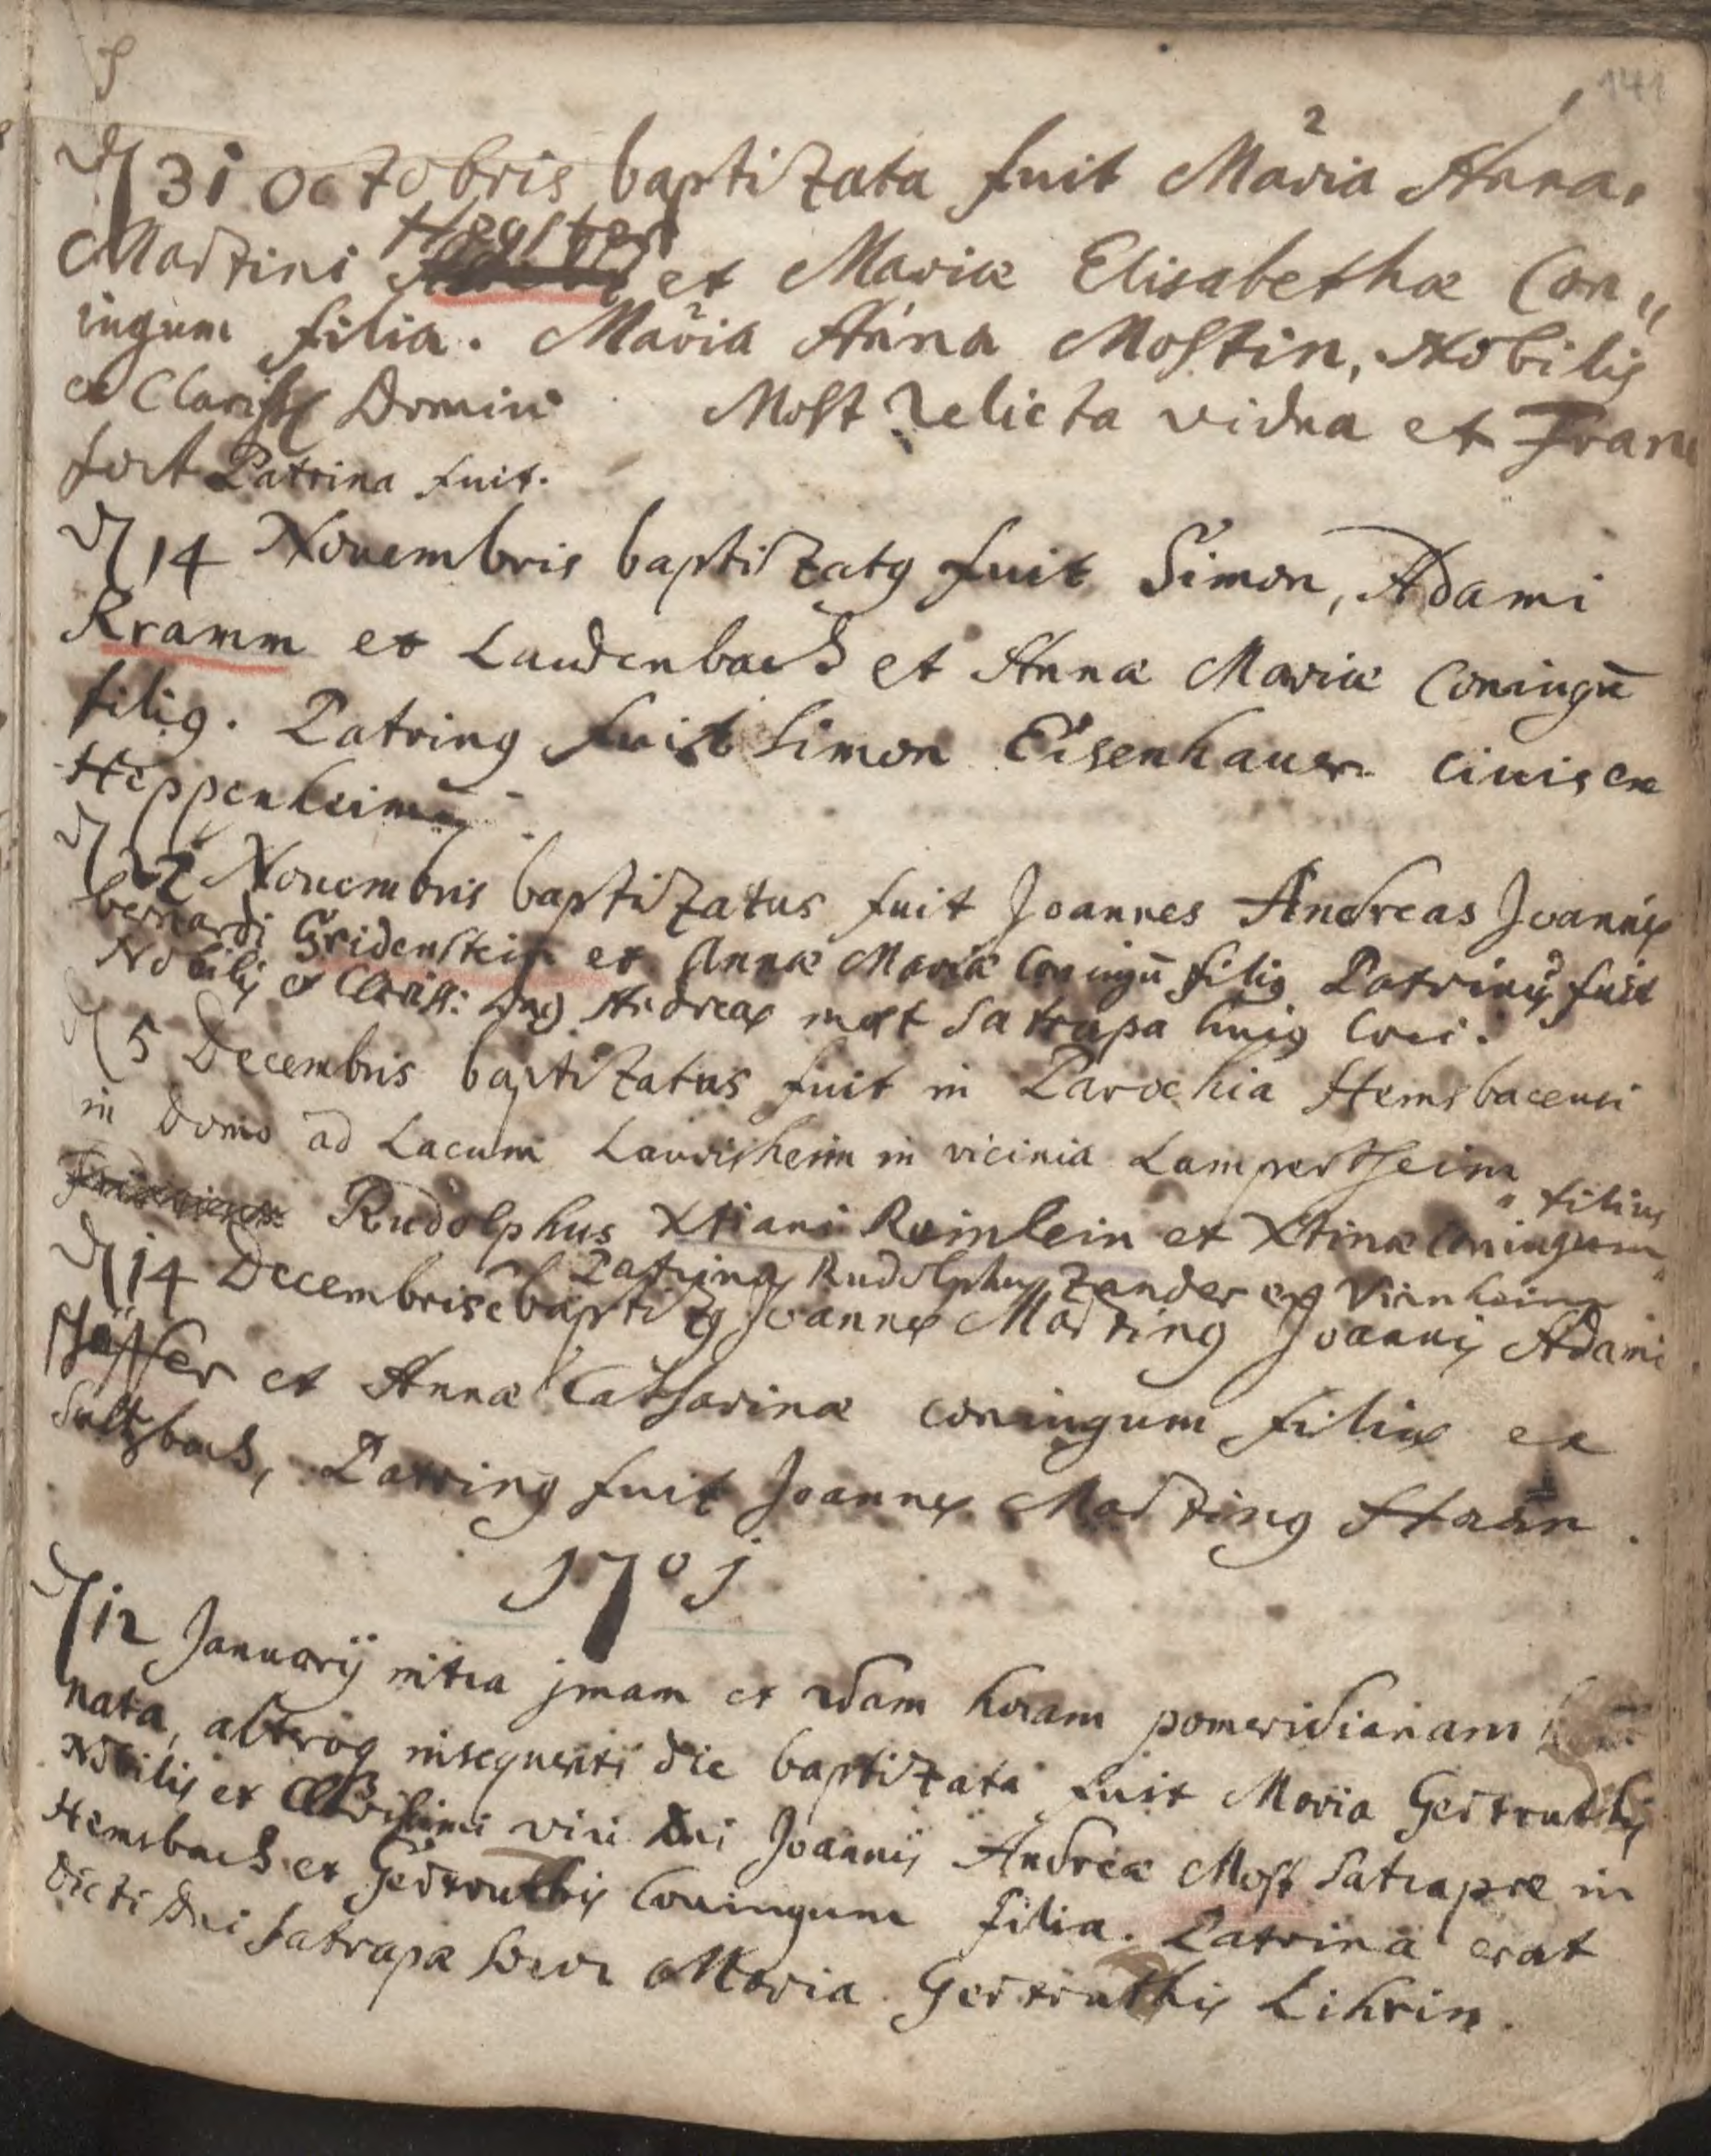 141
31 Octobris baptizata fuit Maria Anna,
Martini et Mariæ Elisabethæ Con„
iugum filia. Maria Anna Mostin, Nobilis
et Clariss Domini Most relicta vidua et Franc
fort Patrina fuit.
14 Nouembris baptizatg fuit Simon, Adami
Kramm ex Laudenbach et Annæ Mariæ Coniugū
filig. Patring fuit Simon Eisenhauer ciuis ex
Heppenheim
22 Nouembris baptizatus fuit Joannes Andreas Joannis
bernardi Gridenstein et Annæ Mariæ Coniugū filig Patring fuit
Nobilis et Clariss: Dng Andreas most Satrapa huig loci.
5 Decembris baptizatus fuit in Parochia Hemsbacensi
in domo ad Lacum Laurisheim in vicinia Lampertheim
filius
Rudolphus Xtiani Reinlein et Xtinæ Coniugum
Patring Rudolphus Zander ex Viernheim
14 Decembris baptizg Joannes Marting Joannis Adami
Schäffer et Annæ Catharinæ coniugum filius ex
Sultzbach, Patring fuit Joannes Marting Haan.
1701
12 Januarij intra jmam et 2dam horam pomeridianam
nata, alterog insequenti die baptizata fuit Maria Gertrudis
Nobilis et Clarissimi viri Dni Joannis Andreæ Most Satrapæ in
Hemsbach et Gertrudis Coniugum filia. Patrina erat
dicti Dni Satrapæ Soror Maria Gertruthis Lihrin.